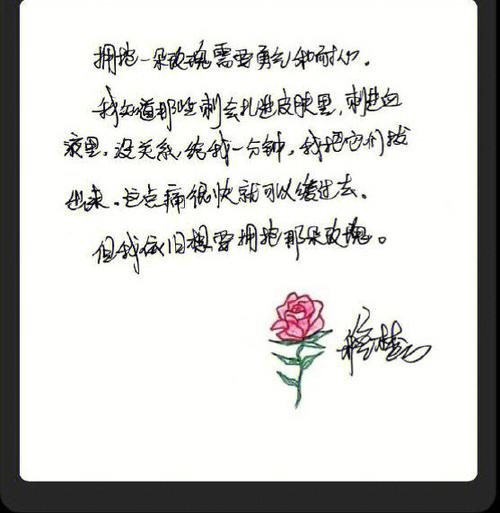 拥抱一朵玫瑰需要勇气和耐心。
我知道那些刺会扎进皮肤里,刺进血
液里,没关系,给我一分钟,我把它们拔
出来。这点痛很快就可以缓过去。
但我依旧想要拥抱那朵玫瑰。